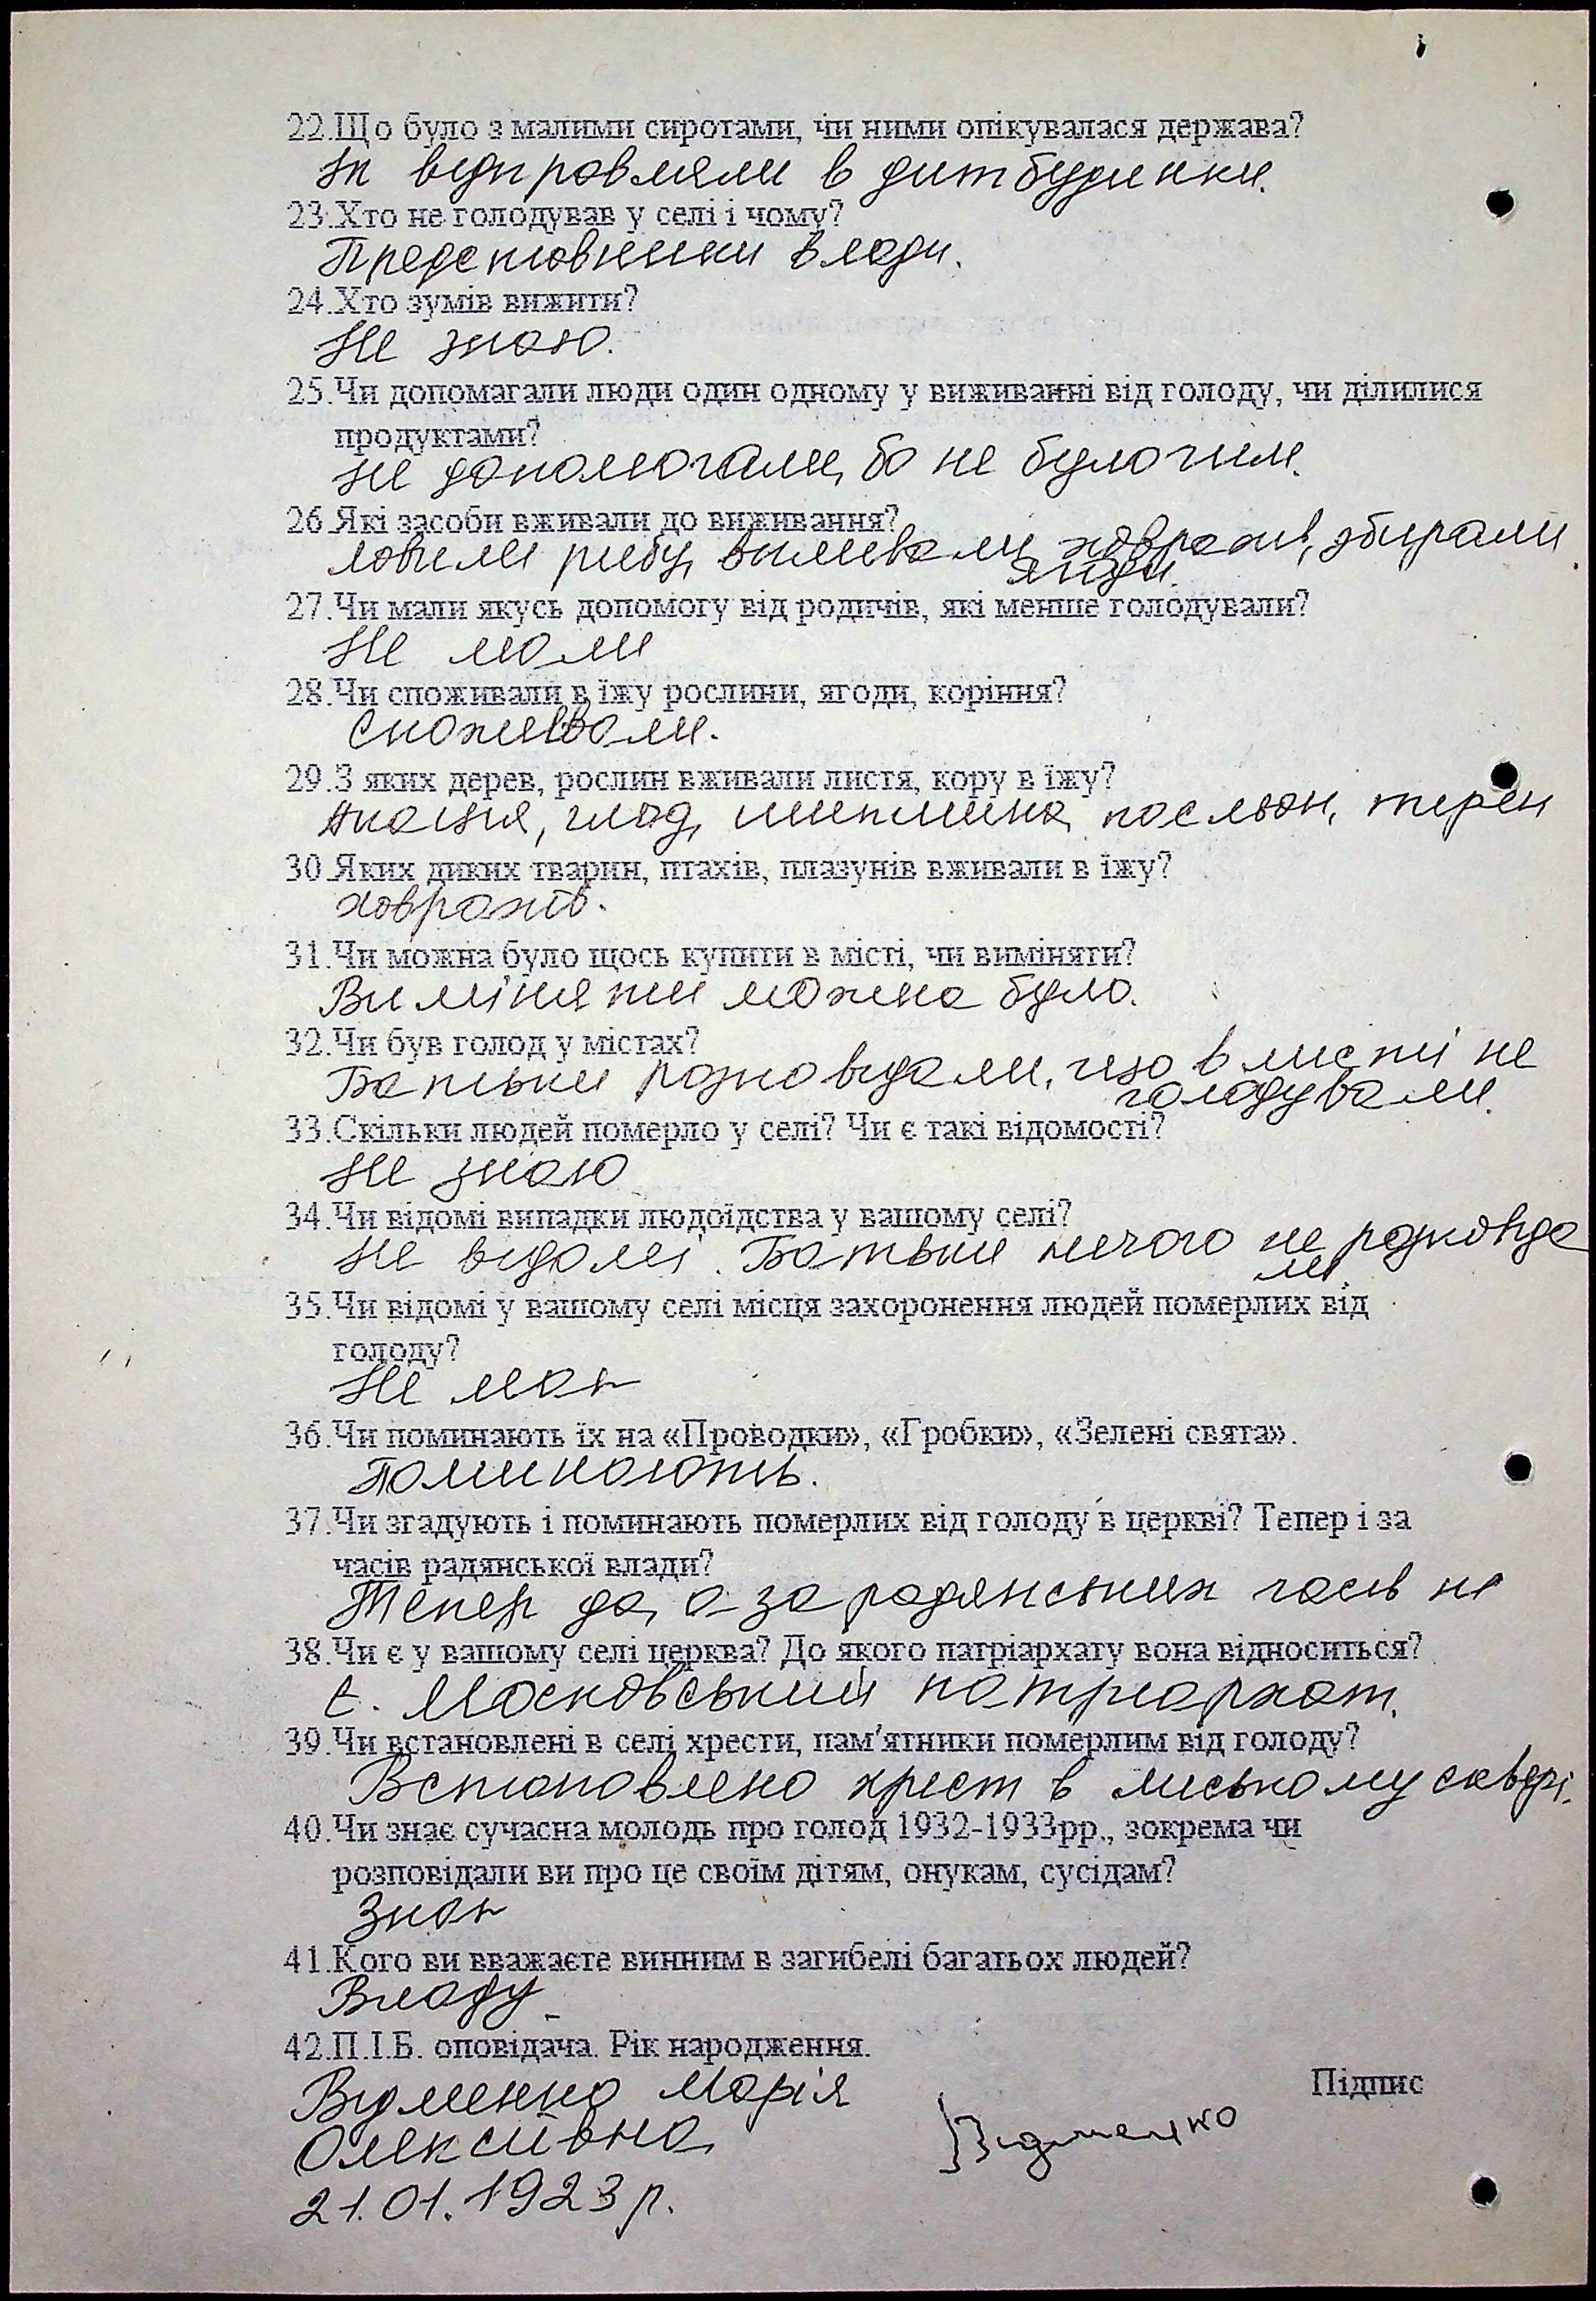 22.Що було з малими сиротами, чи ними опікувалася держава?
Їх відправляли в дитбудинки.
23.Хто не голодував у селі і чому?
Представники влади.
24.Хто зумів вижити?
Не знаю.
25.Чи допомагали люди один одному у виживанні від голоду, чи ділилися
продуктами?
Не допомогали, бо не було чим.
26.Які засоби вживали до виживання?
ловили рибу, виливали ховрахів, збирали
ягоди.
27.Чи мали якусь допомогу від родичів, які менше голодували?
Не мали
28.Чи споживали в їжу рослини, ягоди, коріння?
Споживали.
29.З яких дерев, рослин вживали листя, кору в їжу?
Акація, глод, шипшина, пасльон, терен
30.Яких диких тварин, птахів, плазунів вживали в їжу?
Ховрахів.
31.Чи можна було щось купити в місті, чи виміняти?
Виміняти можна було.
32.Чи був голод у містах?
Батьки розповідали, що в місті не
голодували.
33.Скільки людей померло у селі? Чи є такі відомості?
Не знаю
34.Чи відомі випадки людоїдства у вашому селі?
Не відомі. Батьки нічого не розповіда
ли.
35.Чи відомі у вашому селі місця захоронення людей померлих від
голоду?
Не має
36.Чи поминають їх на «Проводки», «Гробки», «Зелені свята».
Поминають.
37.Чи згадують і поминають померлих від голоду в церкві? Тепер і за
часів радянської влади?
Тепер да, а за радянських часів ні
38.Чи є у вашому селі церква? До якого патріархату вона відноситься?
Є. Московський патріархат.
39.Чи встановлені в селі хрести, пам'ятники померлим від голоду?
Встановлено хрест в міському сквері.
40.Чи знає сучасна молодь про голод 1932-1933рр., зокрема чи
розповідали ви про це своїм дітям, онукам, сусідам?
Знає
41.Кого ви вважаєте винним в загибелі багатьох людей?
Владу
42.П.І.Б. оповідача. Рік народження.
Підпис
Відменко Марія
Олексіївна
Відменко
21.01.1923р.